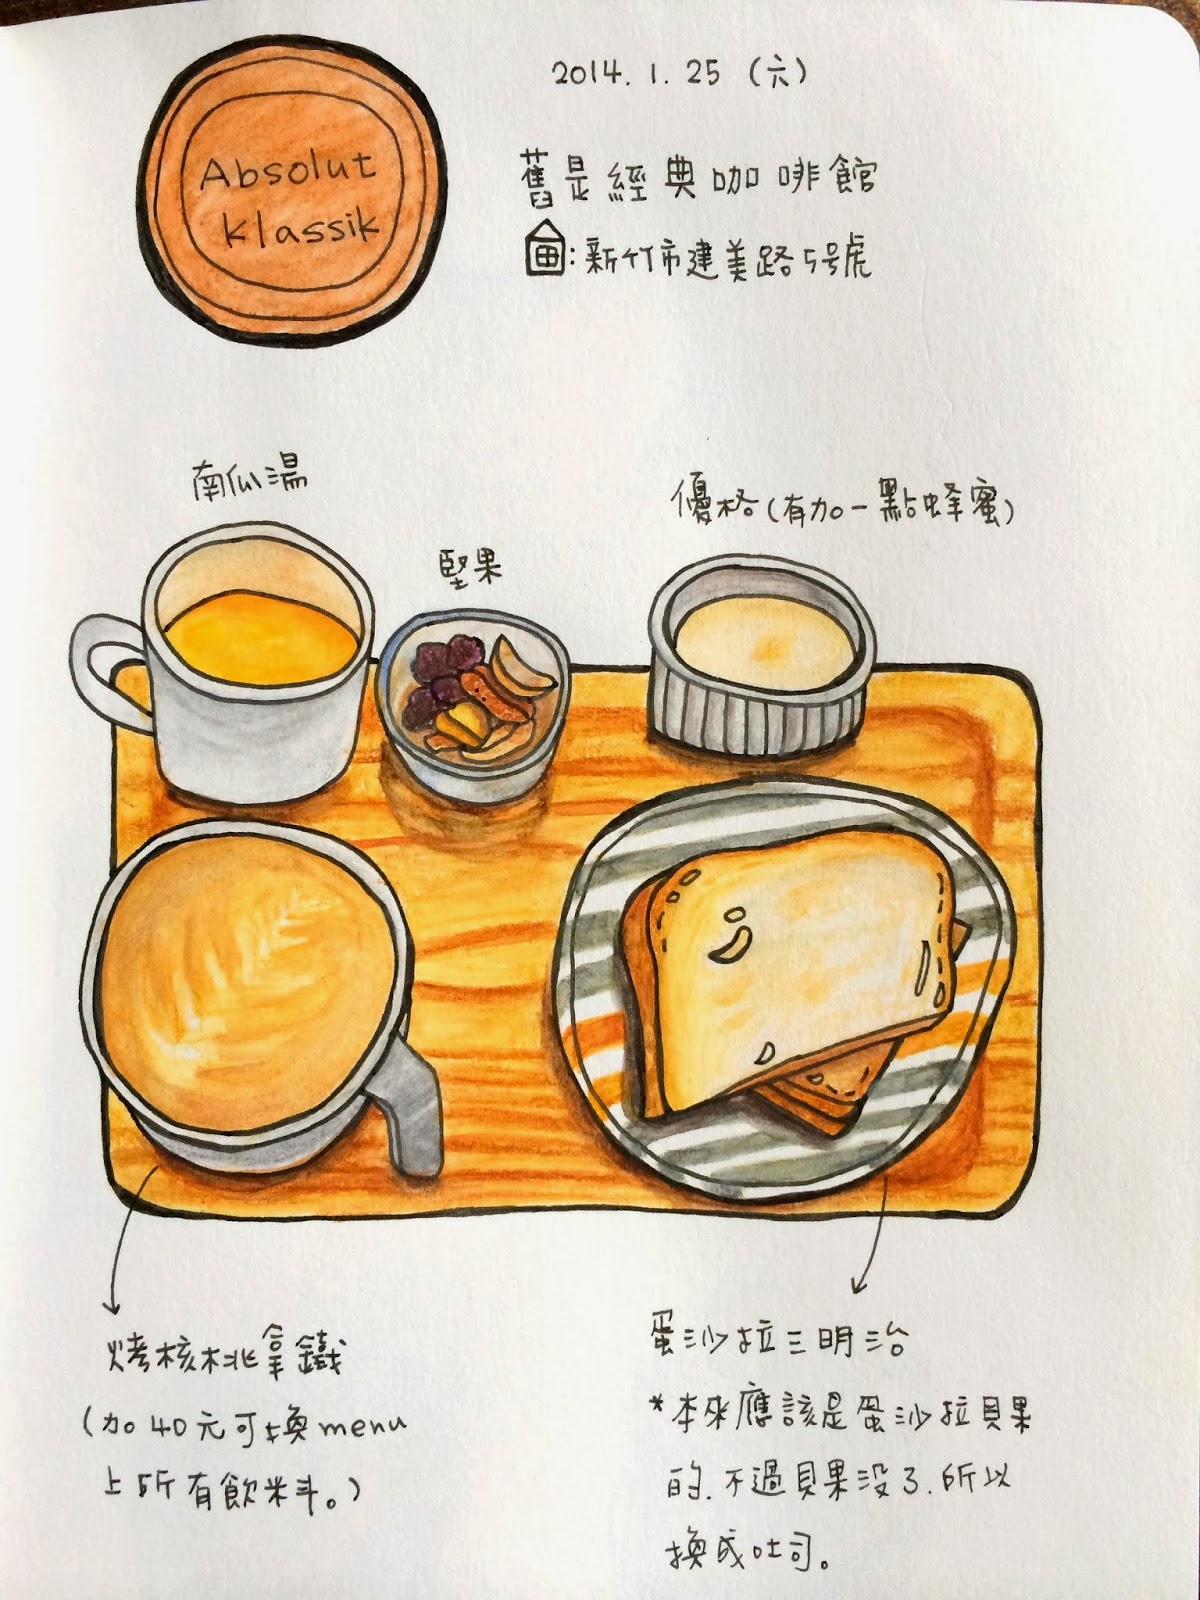 Absolut
klassik
2014. 1. 25 (六)
舊是經典咖啡館
:新竹市建美路5號
南瓜湯
堅果
優格(有加一點蜂蜜)
烤核桃拿鐵
(加40元可換menu
上所有飲料。)
蛋沙拉三明治
*本來應該是蛋沙拉貝果
的.不過貝果沒了.所以
換成吐司。